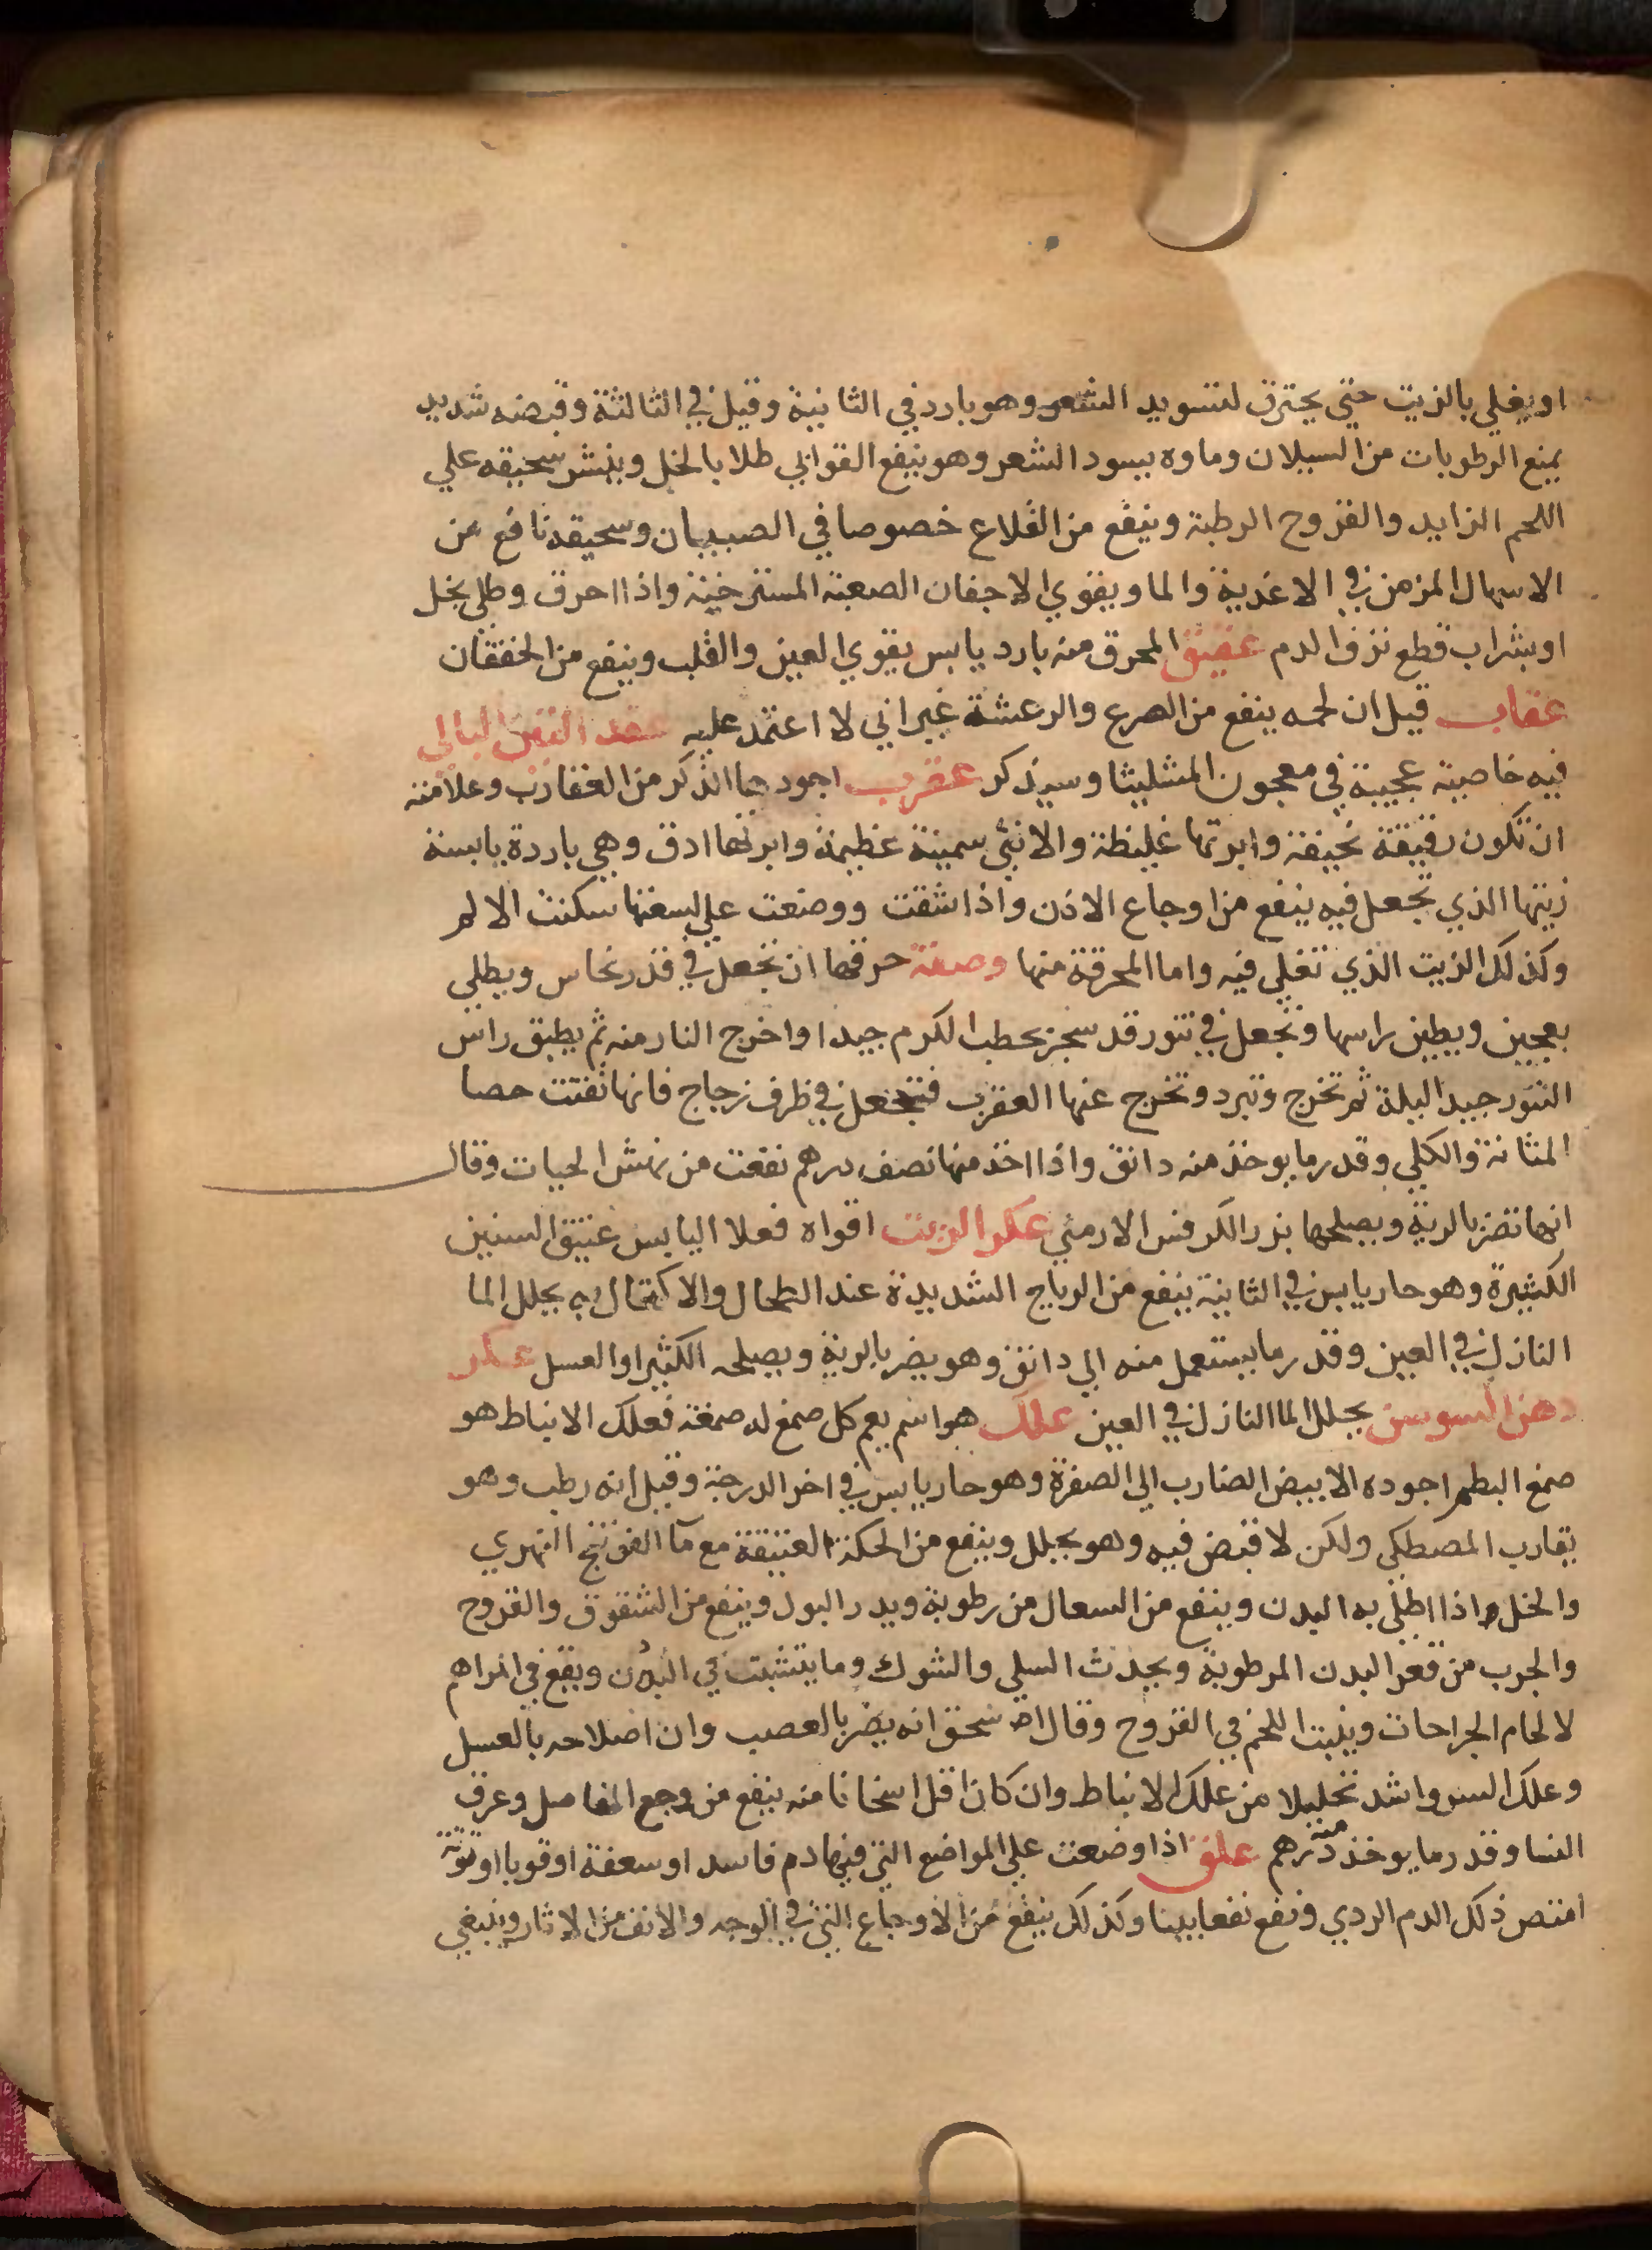 او يغلي بالزيت حتي يحترق لتسويد الشعر وهو بارد في الثانية وقيل في الثالثة وقبضه شديد
يمنع الرطوبات من السيلان وماوه يسود الشعر وهو ينفع القوابي طلا بالخل وينشر سحيقه علي
اللحم الزايد والقروح الرطبة وينفع من القلاع خصوصا في الصبيان وسحيقه نافع من
الاسهال المزمن في الاغذية والما ويقوي الاجفان الصعبة المسترخية واذا احرق وطلي بخل
او بشراب قطع نزف الدم عقيق المحرق منه بارد يابس يقوي العين والقلب وينفع من الخفقان
عقاب قيل ان لحمه ينفع من الصرع والرعشة غير اني لا اعتمد عليه عقد التين البالي
فيه خاصية عجيبة في معجون المثليثا وسيذكر عقرب اجودها الذكر من العقارب وعلامته
ان تكون رقيقة نحيفة وابرتها غليظة والانثي سمينة عظيمة وابرتها ادق وهي باردة يابسة
زيتها الذي تجعل فيه ينفع من اوجاع الاذن واذا شقت ووضعت علي لسعتها سكنت الالم
وكذلك الزيت الذي تغلي فيه واما المحرقة منها وصفة حرقها ان تجعل في قدر نحاس ويطلي
بعجين ويطين راسها وتجعل في تنور قد سجر بحطب الكرم جيدا واخرج النار منه ثم يطبق راس
التنور جيدا ليلة ثم تخرج وتبرد وتخرج عنها العقرب فتجعل في ظرف زجاج فانها تفتت حصا
المثانة والكلي وقدر ما يوخذ منه دانق واذا اخذ منها نصف درهم نفعت من نهش الحيات وقال
انها تضر بالرية ويصلحها بزر الكرفس الارمني عكر الزيت اقواه فعلا اليابس عتيق السنين
الكثيرة وهو حار يابس في الثانية ينفع من الرياح الشديدة عند الطحال والاكتحال به يحلل الما
النازل في العين وقدر ما يستعمل منه الي دانق وهو يضر بالرية ويصلحه الكثيرا والعسل عكر
دهن السوسن يحلل الما النازل في العين علك هو اسم يعم كل صمغ له صمغة فعلك الانباط هو
صمغ البطم اجوده الابيض الضارب الي الصفرة وهو حار يابس في اخر الدرجة وقيل انه رطب وهو
يقارب المصطكي ولكن لا قبض فيه وهو يحلل وينفع من الحكة العتيقة مع مآ الفوتنج النهري
والخل واذا اطلي به البدن وينفع من السعال من رطوبة ويدر البول وينفع من الشقوق والقروح
والجرب من قعر البدن المرطوبة ويجدث السلي والشوك وما يتشبث في البدن ويقع في المراهم
لالحام الجراحات وينبت اللحم في القروح وقال اسحق انه يضر بالعصب وان اصلاحه بالعسل
وعلك السرو اشد تحليلا من علك الانباط وان كان اقل اسخانا منه ينفع من وجع المفاصل وعرق
النسا وقدر ما يوخذ منه درهم علق اذا وضعت علي المواضع التي فيها دم فاسد او سعفة او قوبا او توتة
امتص ذلك الدم الردي ونفع نفعا بينا وكذلك ينفع من الاوجاع التي في الوجه والانف من الاثار وينبغي